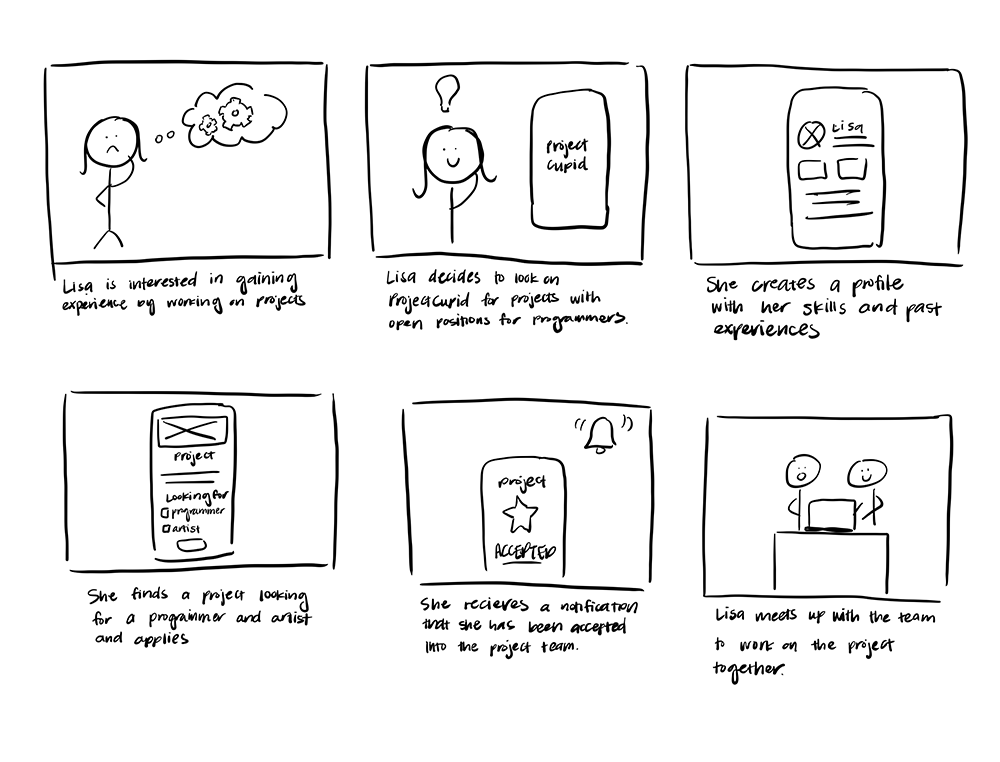 Lisa is interested in gaining
experience by working on projects
Project
Cupid
Lisa decides to look on
ProjectCupid for projects with
open positions for programmers.
Lisa
She creates a profile
with her skills and past
experiences
Project
Looking for
programmer
artist
She finds a project looking
for a programmer and artist
and applies
Project
ACCEPTED
She recieves a notification
that she has been accepted
into the project team.
Lisa meets up with the team
to work on the project
together.